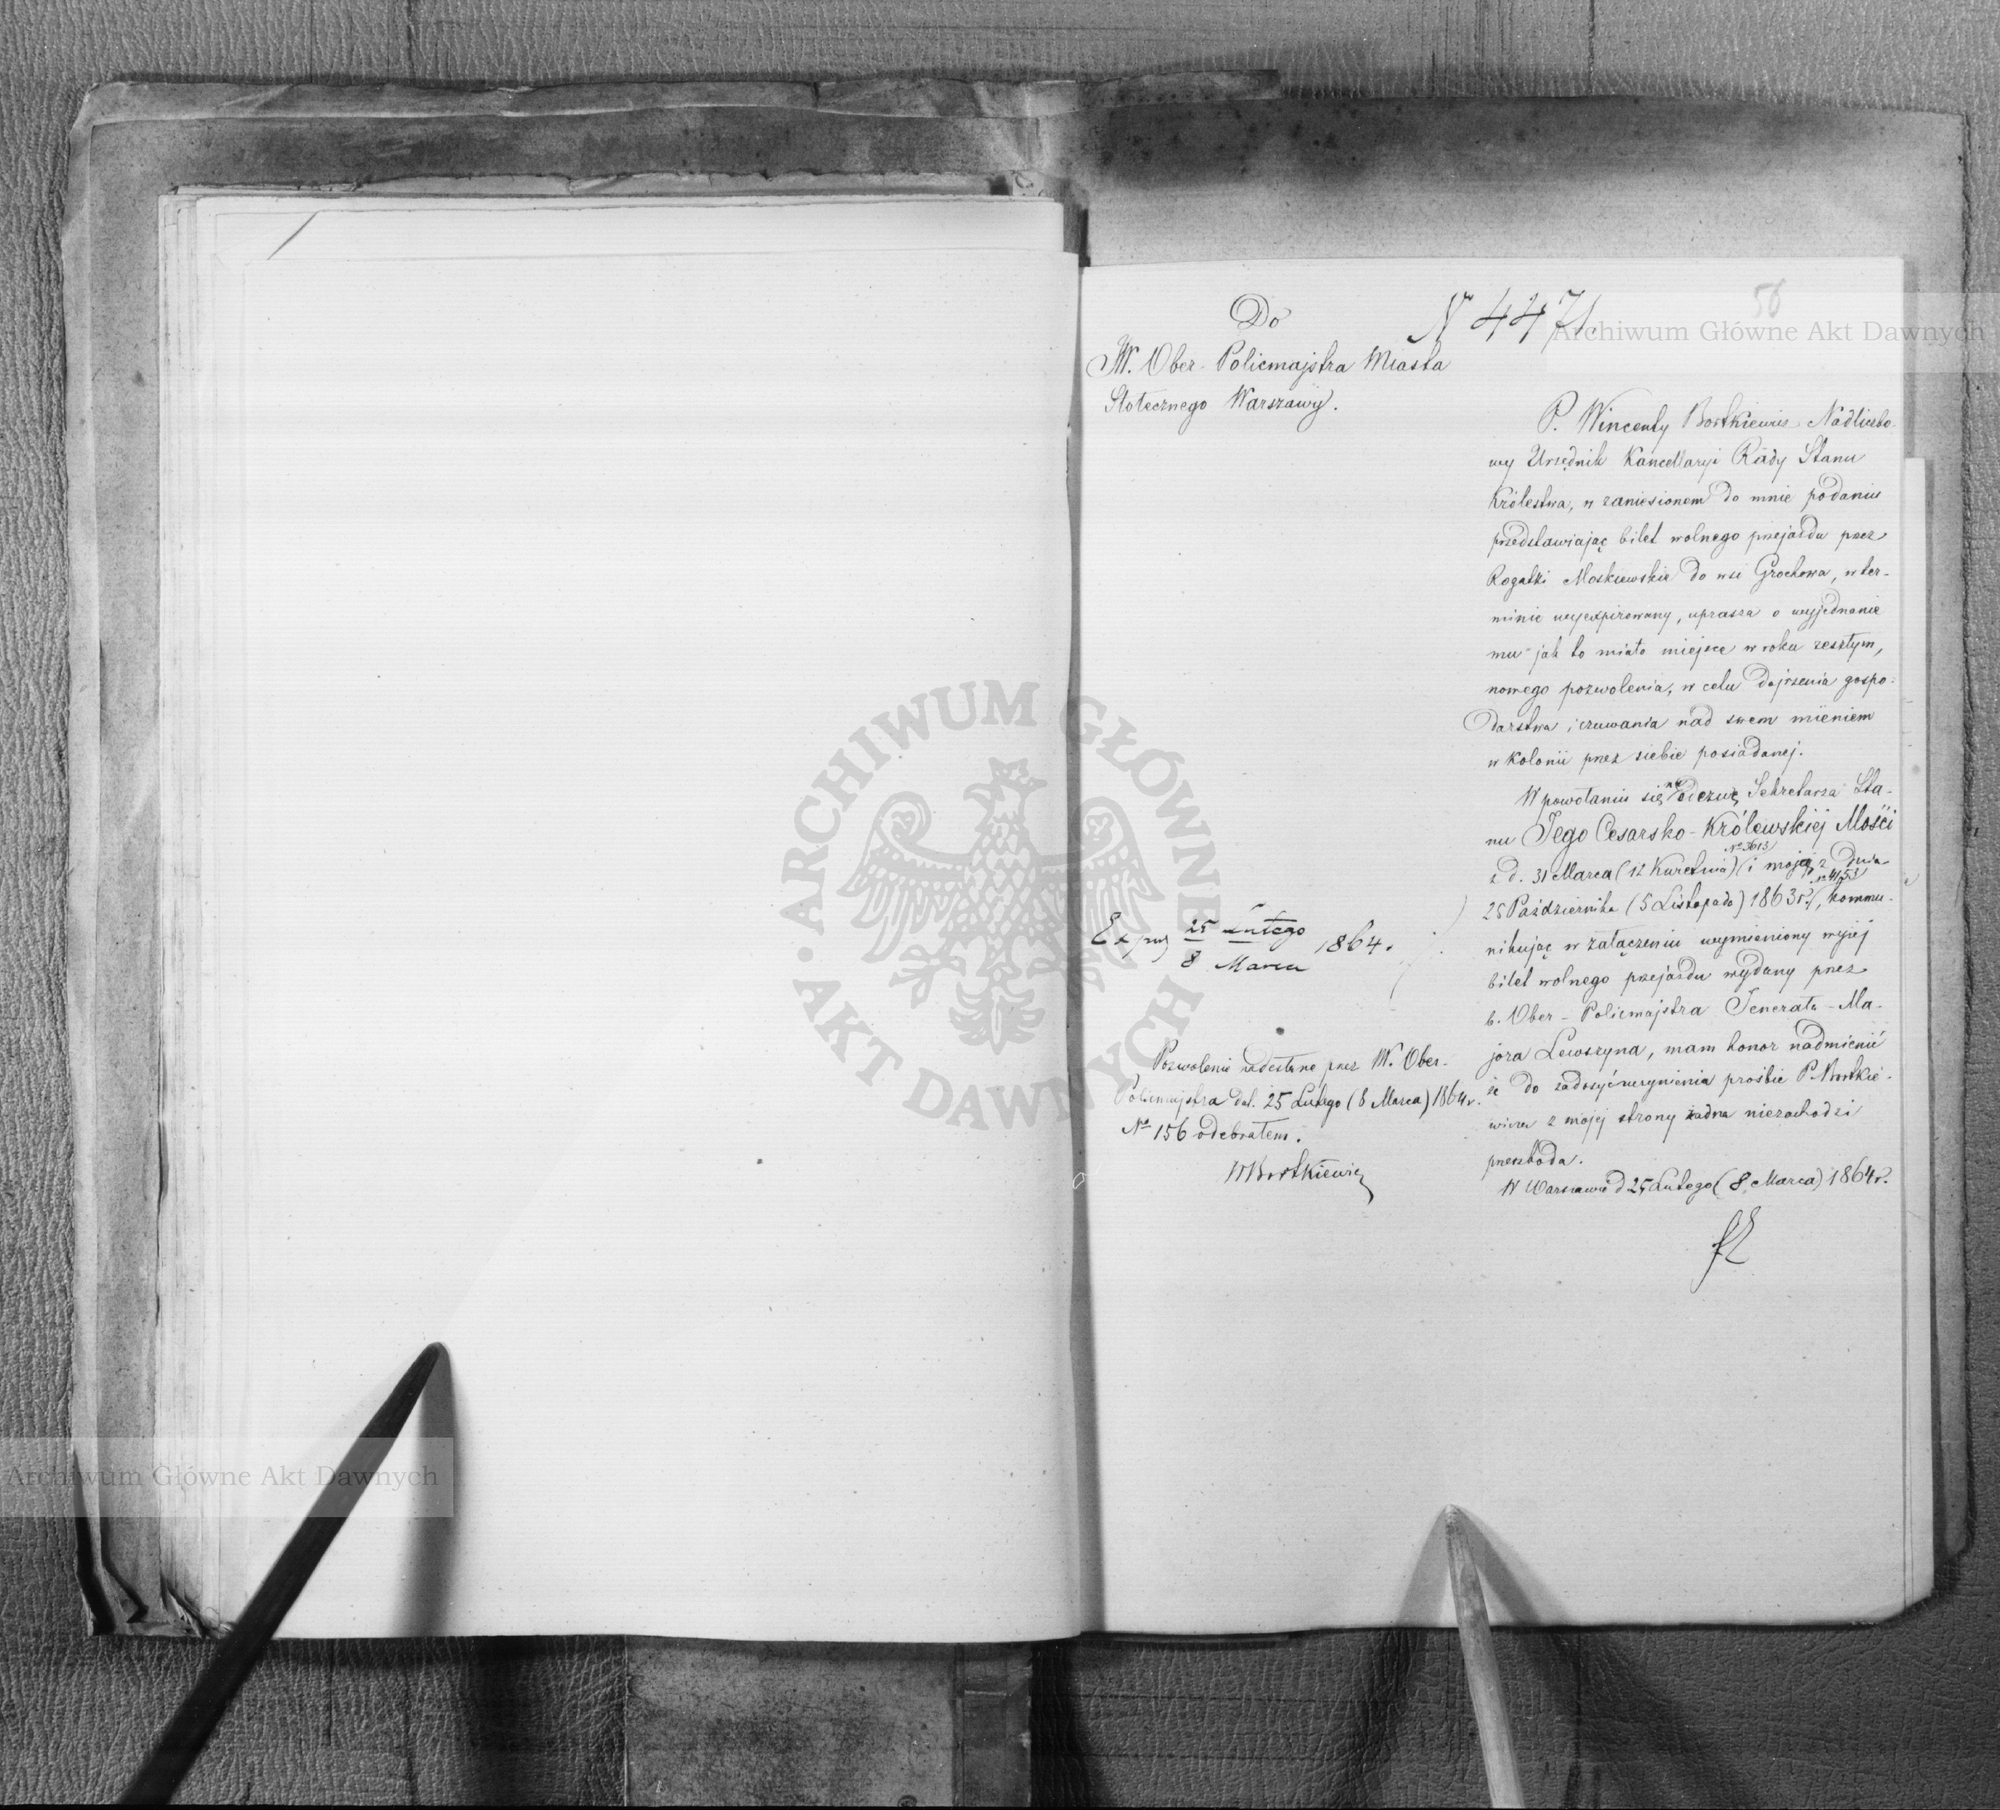 56
Do
N 4471.
JW. Ober-Policmajstra Miasta
Stołecznego Warszawy.
P. Wincenty Bortkiewicz Nadliczbo-
wy Urzędnik Kancellaryi Rady Stanu
Królestwa, w zaniesionem do mnie podaniu
przedstawiając bilet wolnego przejazdu przez
Rogatki Moskiewskie do wsi Grochowa, w ter-
minie wyexpirowany, uprasza o wyjednanie
mu jak to miało miejsce w roku zeszłym,
nowego pozwolenia, w celu dojrzenia gospo-
darstwa i czuwania nad swem mieniem
w kolonii przez siebie posiadanej.
W powołaniu się na odezwę Sekretarza Sta-
nu Jego Cesarsko-Królewskiej Mości
z d. 31 Marca (12 Kwietnia) No 3613 i moję z dnia
25 Października (5 Listopada) 1863 r. No 4153, kommu-
nikując w załączeniu wymieniony wyżej
bilet wolnego przejazdu wydany przez
b. Ober-Policmajstra Jenerała-Ma-
jora Lewszyna, mam honor nadmienić
że do zadosyćuczynienia prośbie P. Bortkie-
wicza z mojej strony żadna niezachodzi
przeszkoda.
W Warszawie d 25 Lutego (8 Marca) 1864 r.
25 Lutego
8 Marca 1864.
Pozwolenie nadesłane przez W. Ober-
Policmajstra dat. 25 Lutego (8 Marca) 1864 r.
No 156 odebrałem.
WBortkiewicz
ARCHIWUM GŁÓWNE AKT DAWNYCH
Archiwum Główne Akt Dawnych
Archiwum Główne Akt Dawnych